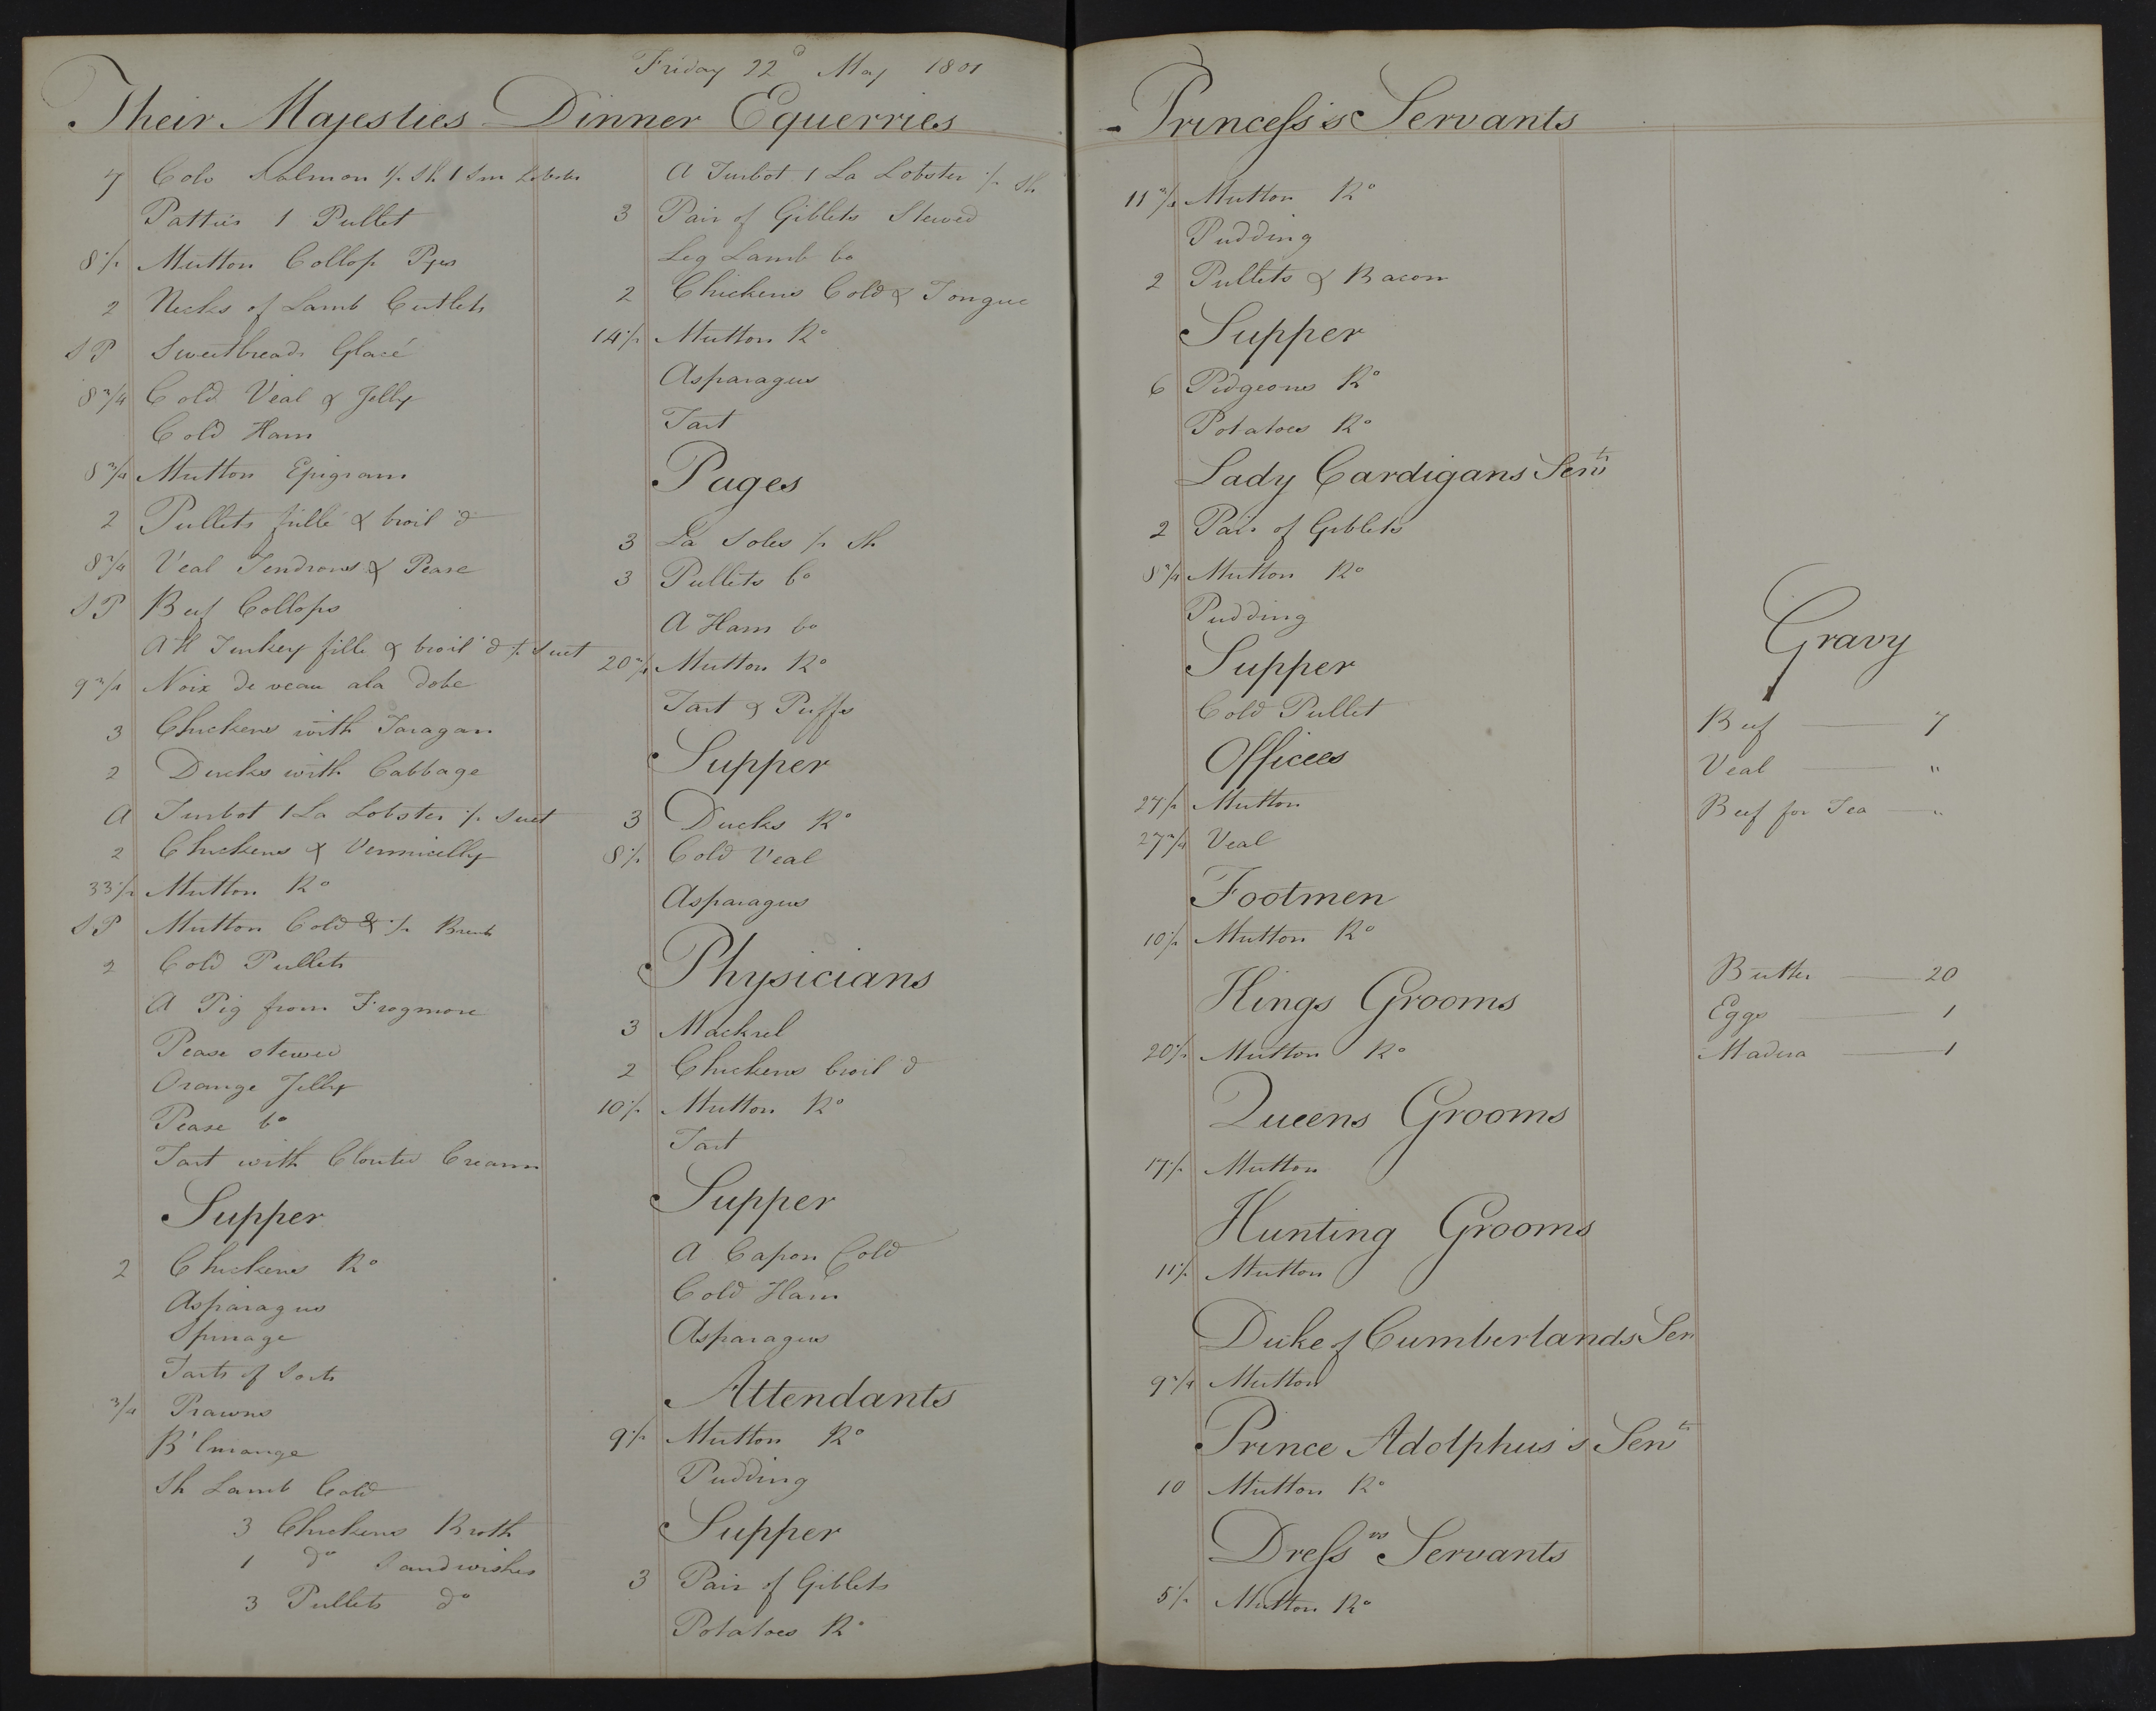 Friday 22d May 1801
Their Majesties Dinner
7 Colo Salmon 1/2 Sh 1 Sm Lobster
Patties 1 Pullet
8 1/2 Mutton Collop Pyes
2 Necks of Lamb Cutlets
S P Sweetbreads Glacé
8 3/4 Cold Veal & Jelly
Cold Ham
8 3/4 Mutton Epigram
2 Pullets fillé & broil'd
8 3/4 Veal Tendrons & Pease
S P Beef Collops
A H Turkey fille & broil'd 1/2 Suet
9 3/4 Noix de veau ala dobe
3 Chickens with Taragan
2 Ducks with Cabbage
A Turbot 1 La Lobster 1/2 Suet
2 Chickens & Vermicelly
33 1/2 Mutton Ro
S P Mutton Cold & 1/2
2 Cold Pullets
A Pig from Frogmore
Pease stewed
Orange Jelly
Pease bo
Tart with Clouted Cream
Supper
2 Chickens Ro
Asparagus
Spinage
Tarts of Sorts
3/4 Prawns
B'lmange
Sh Lamb Cold
3 Chickens Broth
1 do Sandwishes
3 Pullets do
Equerries
A Turbot 1 La Lobster 1/2 Sh
3 Pair of Giblets Stewed
Leg Lamb bo
2 Chickens Cold & Tongue
14 1/2 Mutton Ro
Asparagus
Tart
Pages
3 La Soles 1/2 Sh
3 Pullets bo
A Ham bo
20 3/4 Mutton Ro
Tart & Puffs
Supper
3 Ducks Ro
8 1/2 Cold Veal
Asparagus
Physicians
3 Mackrel
2 Chickens broil'd
10 1/2 Mutton Ro
Tart
Supper
A Capon Cold
Cold Ham
Asparagus
Attendants
9 1/2 Mutton Ro
Pudding
Supper
3 Pair of Giblets
Potatoes Ro
Princess's Servants
11 3/4 Mutton Ro
Pudding
2 Pullets & Bacon
Supper
6 Pidgeons Ro
Potatoes Ro
Lady Cardigans Servts
2 Pair of Giblets
8 3/4 Mutton Ro
Pudding
Supper
Cold Pullet
Offices
27 1/2 Mutton
27 3/4 Veal
Footmen
10 1/2 Mutton Ro
Kings Grooms
20 1/2 Mutton Ro
Queens Grooms
17 1/2 Mutton
Hunting Grooms
11 1/2 Mutton
Duke of Cumberlands Ser
9 3/4 Mutton
Prince Adolphus's Servts
10 Mutton Ro
Dressrs Servants
5 1/2 Mutton Ro
Gravy
Beef — 7
Veal — "
Beef for Tea — "
Butter — 20
Eggs — 1
Madera — 1